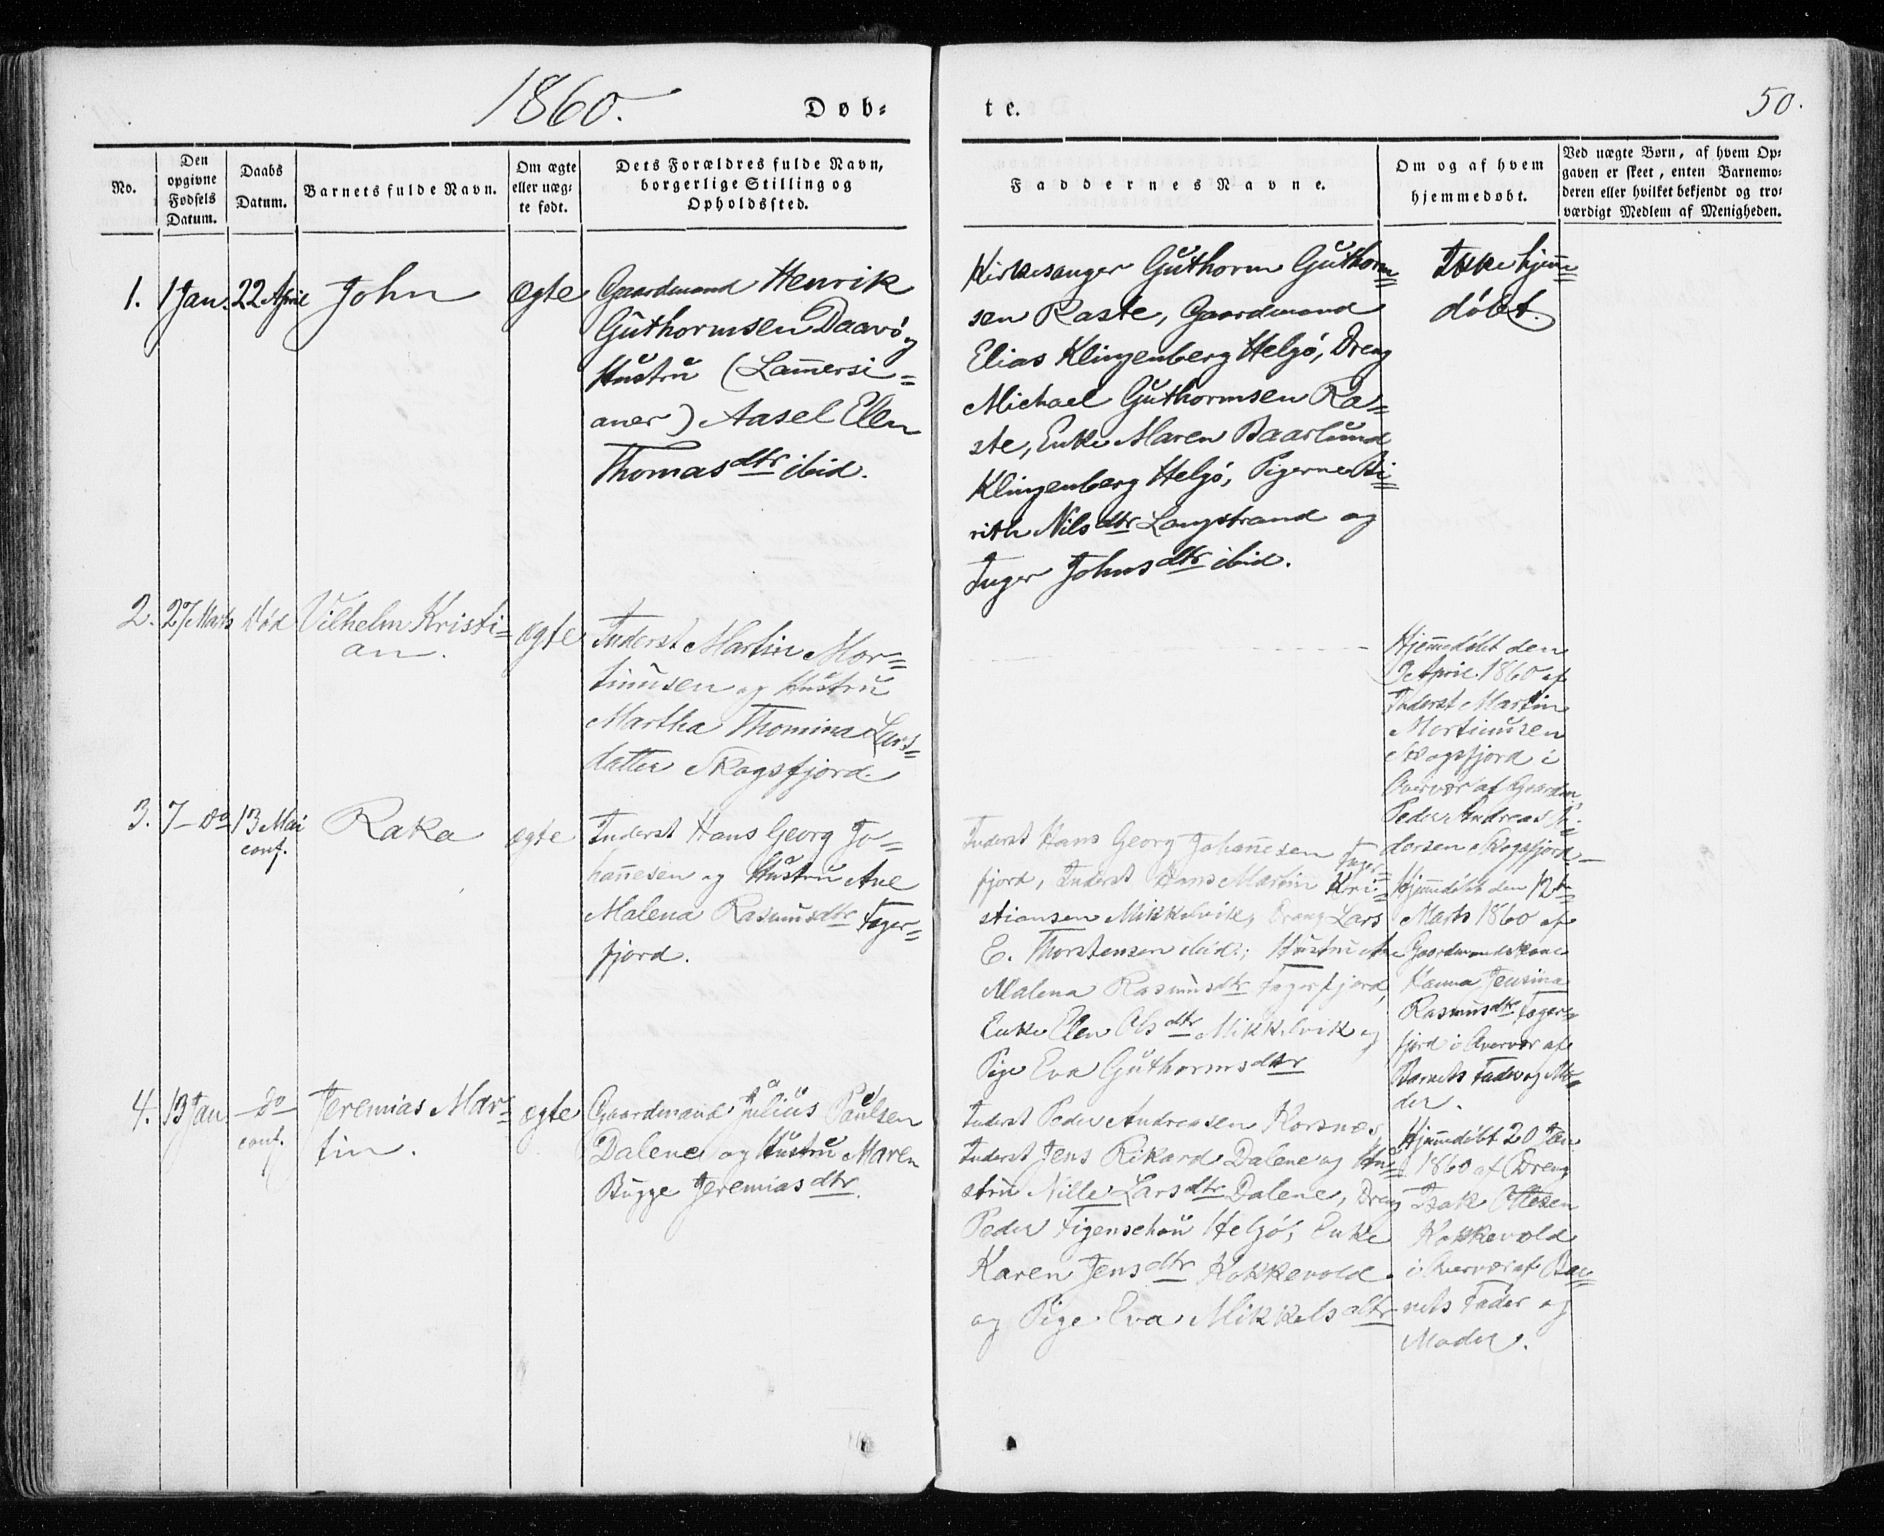 1860.
Døb-
te.
50.
No.
Den
opgivne
Fødsels
Datum.
Daabs
Datum.
Barnets fulde Navn.
Om ægte
eller uæg-
te født.
Dets Forældres fulde Navn,
borgerlige Stilling og
Opholdssted.
Faddernes Navne.
Om og af hvem
hjemmedøbt.
Ved uægte Børn, af hvem Op-
gaven er skeet, enten Barnemo-
deren eller hvilket bekjendt og tro-
værdigt Medlem af Menigheden.
1. 1 Jan. 22 April John ægte
Gaardmand Henrik
Guthormsen Daavø og
Hustru (Lam̄ersi=
aner) Aasel Elen
Thomasdtr ibid.
Kirkesanger Guthorm Guthorm=
sen Raste, Gaardmand
Elias Klingenberg Helgö, Dreng
Michael Guthormsen Ra=
ste, Enke Maren Baarlund
Klingenberg Helgö, Pigerne Bi=
rith Nilsdtr Langstrand og
Inger Johnsdtr ibid.
Ikke hjem̄e=
døbt.
2. 27 Marts Død Vilhelm Kristi=
an. ægte
Inderst Martin Mor=
tinusen og Hustru
Martha Thomina Lars=
datter Skogsfjord.
Hjem̄edøbt den
2 April 1860 af
Inderst Martin
Mortinusen
Skogsfjord i
Overvær af Gaardm.
Peder Andreas P.
dersen Skogsfjord
3. 7 – do 13 Mai
conf.
Raka ægte
Inderst Hans Georg Jo=
han̄esen og Hustru Ane
Malena Rasmusdtr Fager=
fjord.
Inderst Hans Georg Johan̄esen Fager=
fjord, Inderst Hans Martin Kri=
stiansen Mikkelvik, Dreng Lars
E. Thorstensen ibid:; Hustru Ane
Malena Rasmusdtr Fagerfjord,
Enke Elen Olsdtr Mikkelvik og
Pige Eva Guthormsdtr
Hjem̄edøbt den 12te
Marts 1860 af
Gaardmandskone
Hanna Jensina
Rasmusdtr Fager=
fjord i Overvær af
Barnets Fader og Mo=
der.
4. 13 Jan. – do –
conf.
Jeremias Mar=
tin. ægte
Gaardmand Julius Paulsen
Dalene og Hustru Maren
Bugge Jeremiasdtr.
Inderst Peder Andreasen Korsnæs,
Inderst Jens Rikard Dalene og Hu=
stru Nille Larsdtr Dalene, Dreng
Peder Figenschou Helgö, Enke
Karen Jensdtr Kokkevold
og Pige Eva Mikkelsdtr
Hjem̄edøbt 20 Jan.
1860 af Dreng
Isak Ottesen
Kokkevold
i Overvær af Bar=
nets Fader og
Moder.